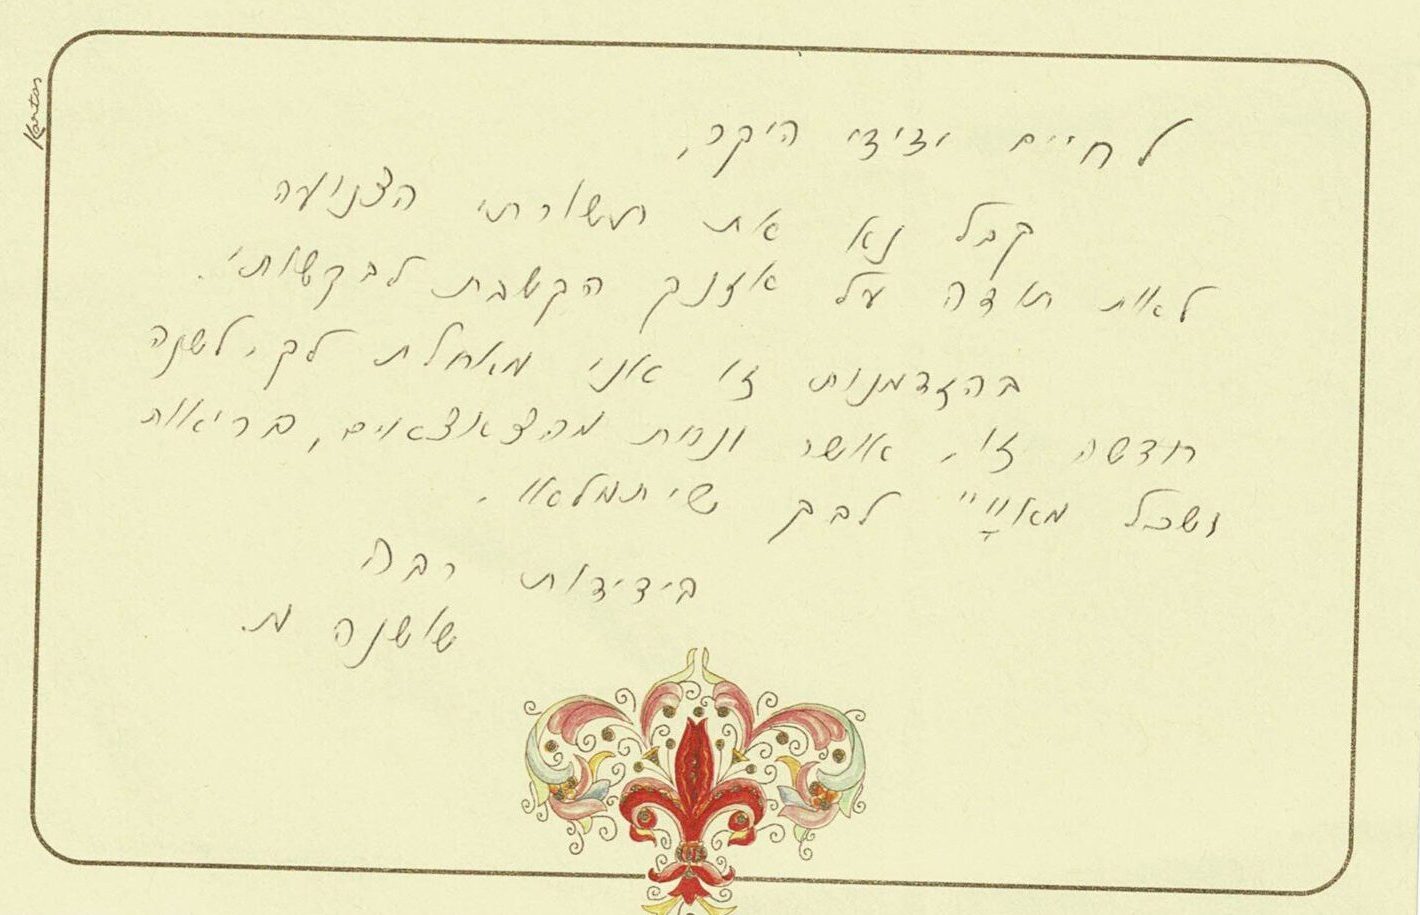 Kartos
לחיים ידידי היקר,
קבל נא את תשורתי הצנועה
לאות תודה על אזנך הקשבת לבקשותי.
בהזדמנות זו אני מאחלת לך, לשנה
חדשה זו, אושר ונחת מהצאצאים, בריאות
ושכל מאויי לבך שיתמלאו.
בידידות רבה
שושנה מ.